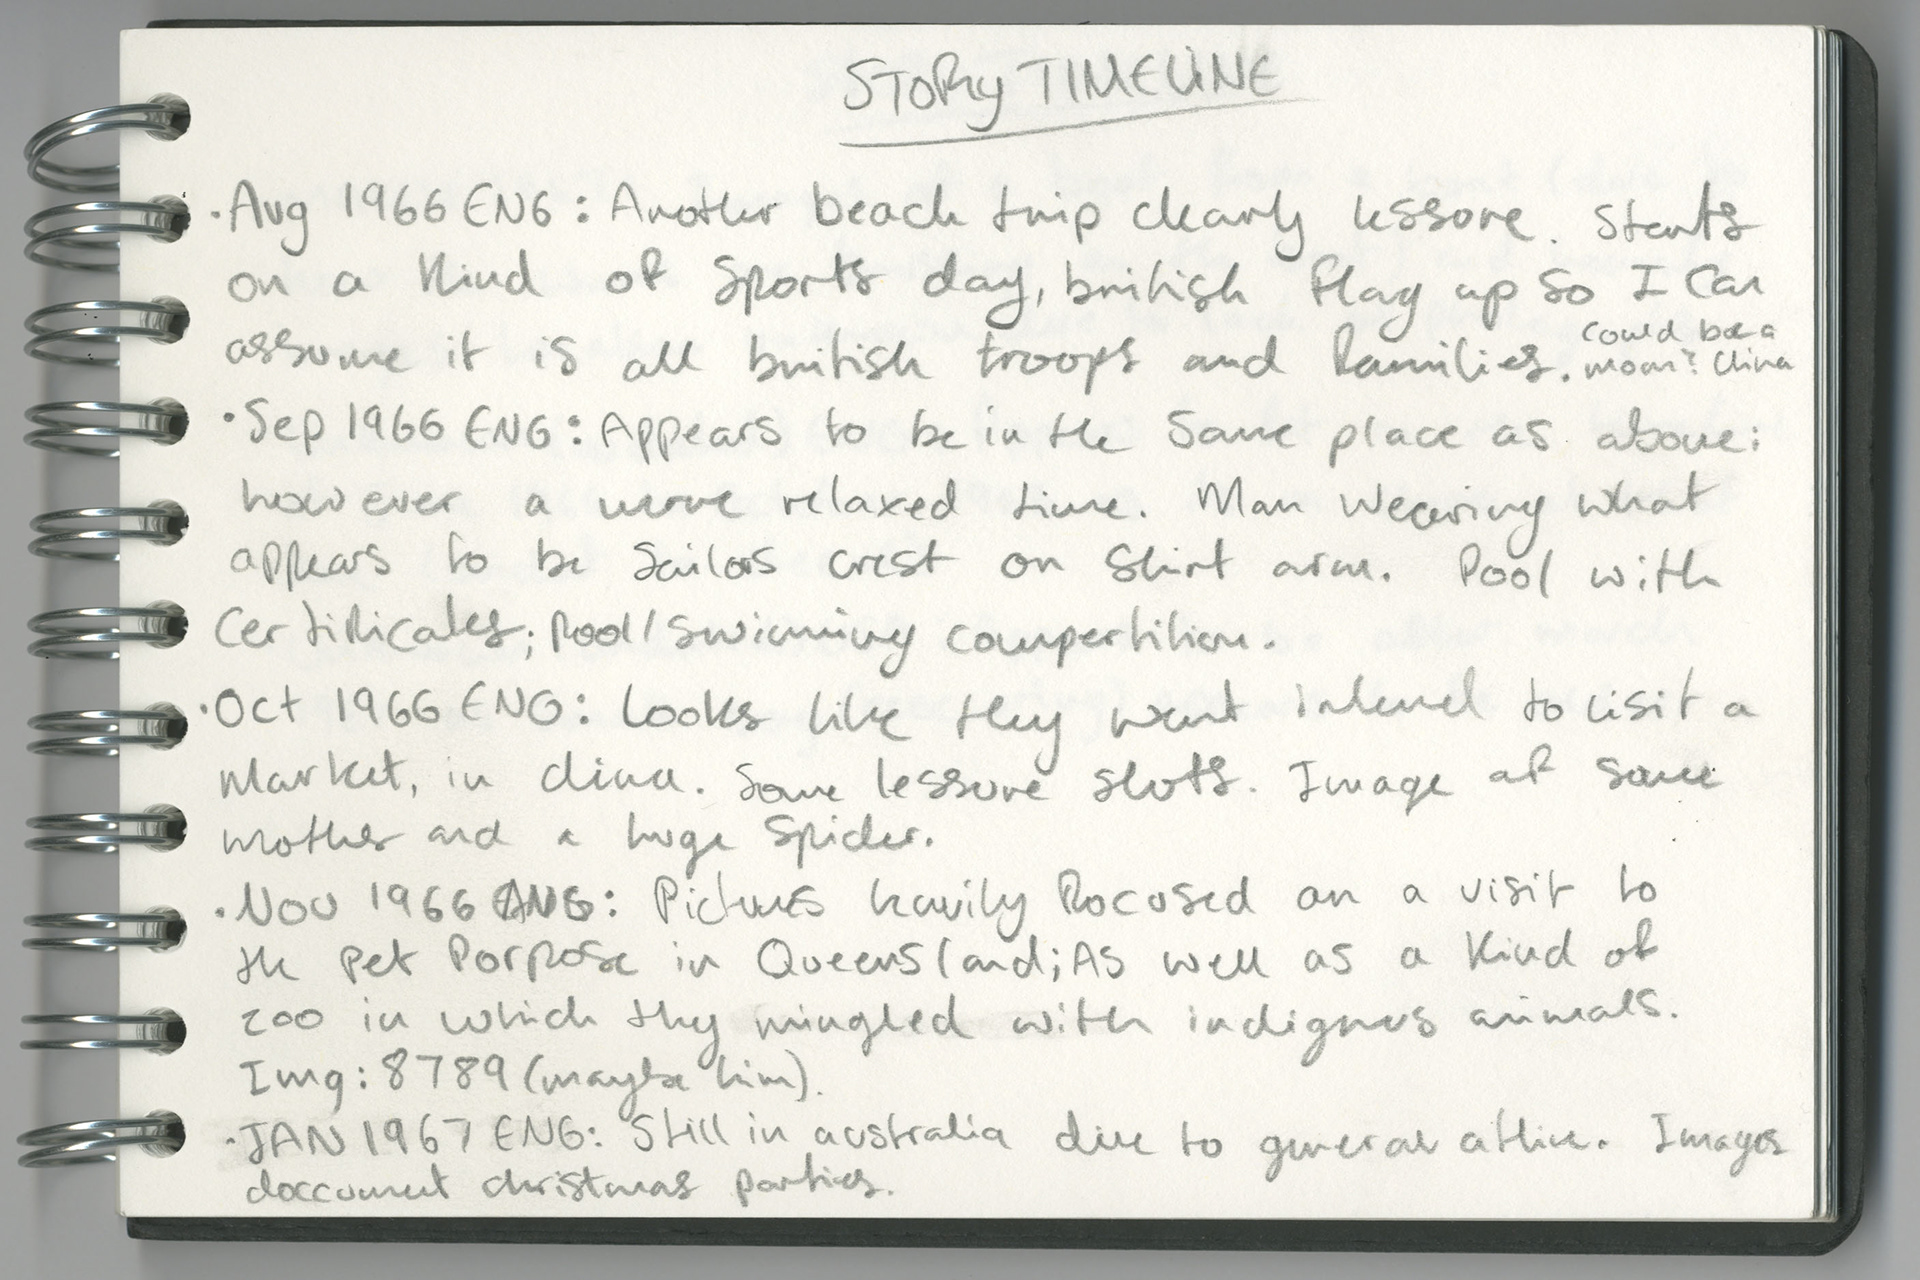 STORY TIMELINE
· Aug 1966 ENG : Another beach trip clearly lessore. Starts
on a kind of sports day, british flag up so I can
assume it is all british troops and families. could be a
China
· Sep 1966 ENG : Appears to be in the same place as above:
however a more relaxed time. Man wearing what
appears to be Sailors crest on shirt arm. Pool with
Certificates; pool/swimming compertition.
· Oct 1966 ENG : Looks like they went inland to visit a
market, in china. Some lessore shots. Image of same
mother and a huge spider.
· Nov 1966 ENG : Pictures heavily focused on a visit to
the pet porpose in Queensland; As well as a kind of
zoo in which they mingled with indignus animals.
Img: 8789 (maybe him).
· JAN 1967 ENG: Still in australia due to general attire. Images
doccument christmas parties.